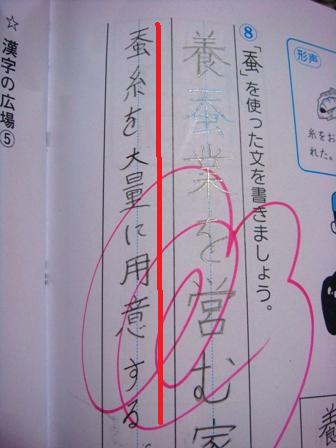 形声
糸をお
れた。
⑧「蚕」を使った文を書きましょう。
養蚕業を営む家
蚕糸を大量に用意する
☆漢字の広場⑤
養